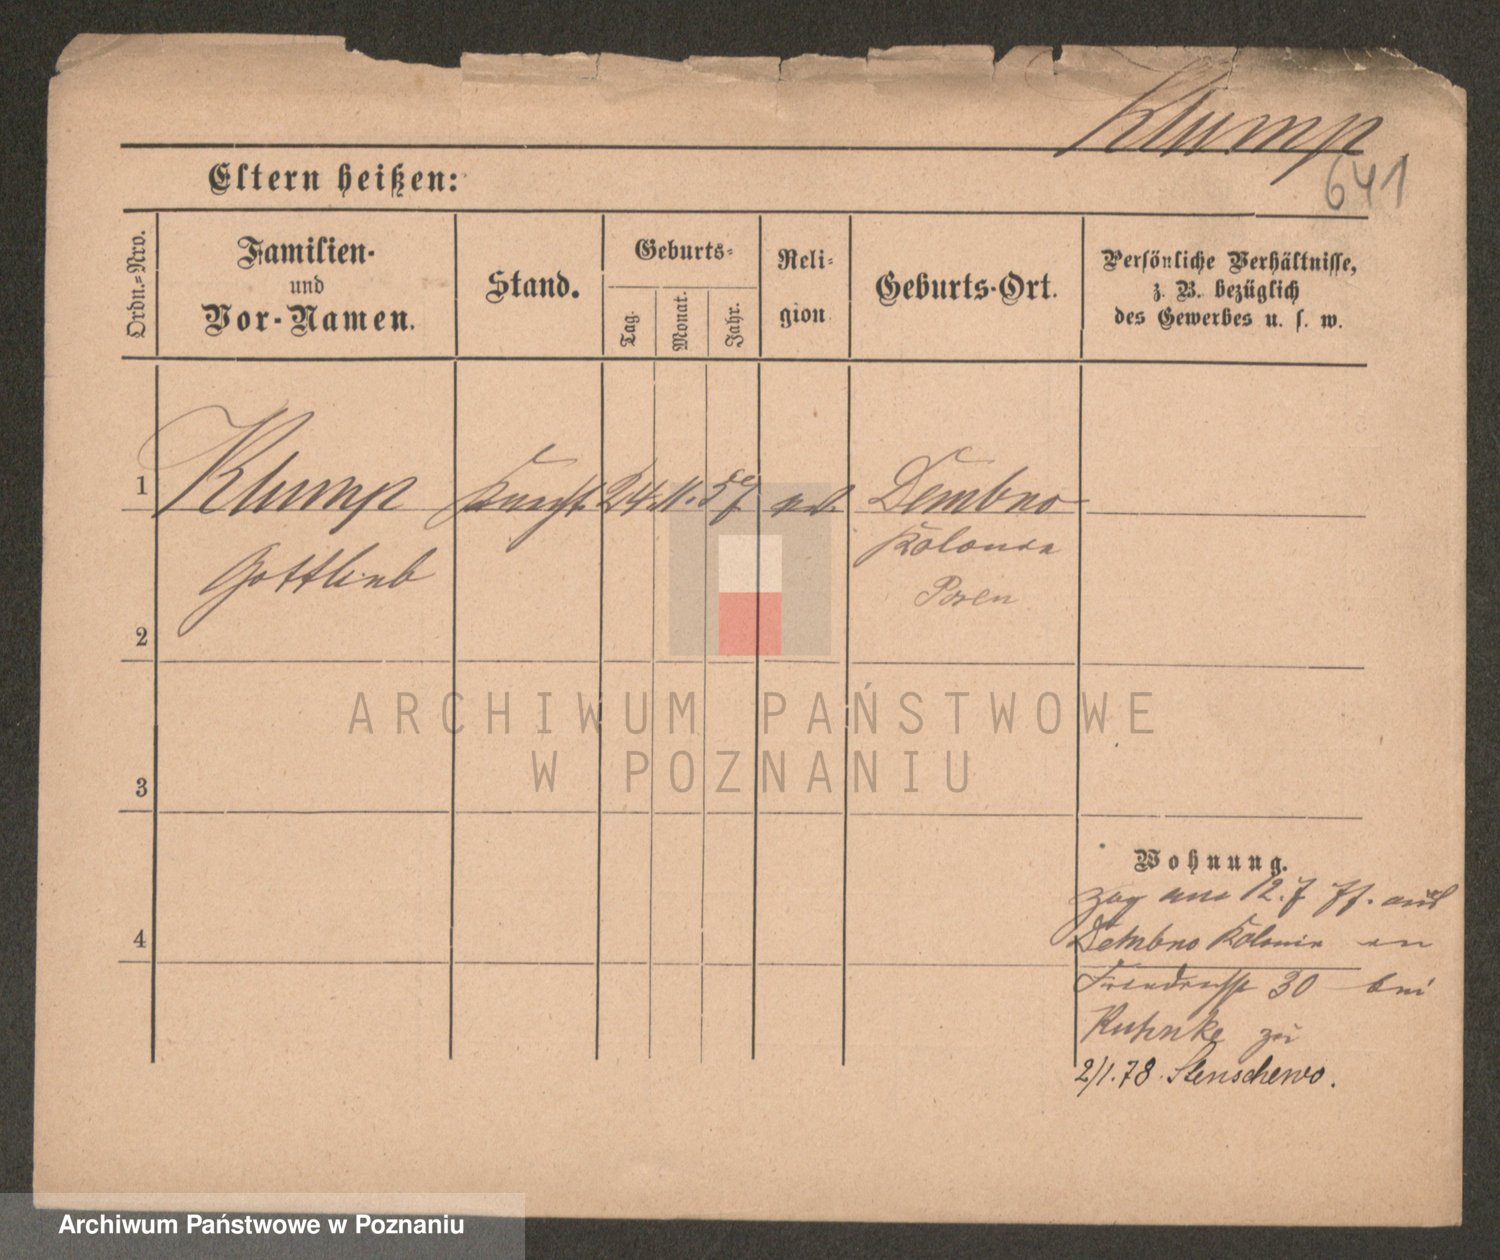 Klump
641
Eltern heißen:
Ordn.-Nro.
Familien-
und
Vor-Namen.
Stand.
Geburts-
Tag.
Monat.
Jahr.
Reli-
gion
Geburts-Ort.
Persönliche Verhältnisse,
z. B. bezüglich
des Gewerbes u. s. w.
1
Klump Knecht 24. 11. 57 Dembno
Gottlieb
Kolonie
Posen
2
3
4
Wohnung.
zog am 12.7 77. aus
Dembno Kolonie
30 bei
Kuhnke zu
2/1.78. Stenschewo.
ARCHIWUM PAŃSTWOWE
W POZNANIU
Archiwum Państwowe w Poznaniu